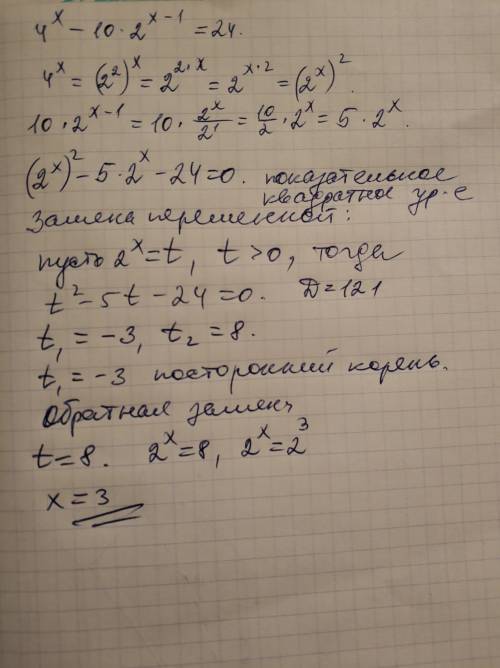 4^x − 10 · 2^{x−1} = 24.
4^x = (2^2)^x = 2^{2·x} = 2^{x·2} = (2^x)^2.
10 · 2^{x−1} = 10 · 2^x/2^1 = 10/2 · 2^x = 5 · 2^x.
(2^x)^2 − 5 · 2^x − 24 = 0. показательное
квадратное ур-е
Замена переменной:
пусть 2^x = t, t > 0, тогда
t^2 − 5t − 24 = 0. D = 121
t₁ = −3, t₂ = 8.
t₁ = −3 посторонний корень.
Обратная замена
t = 8. 2^x = 8, 2^x = 2^3
x = 3